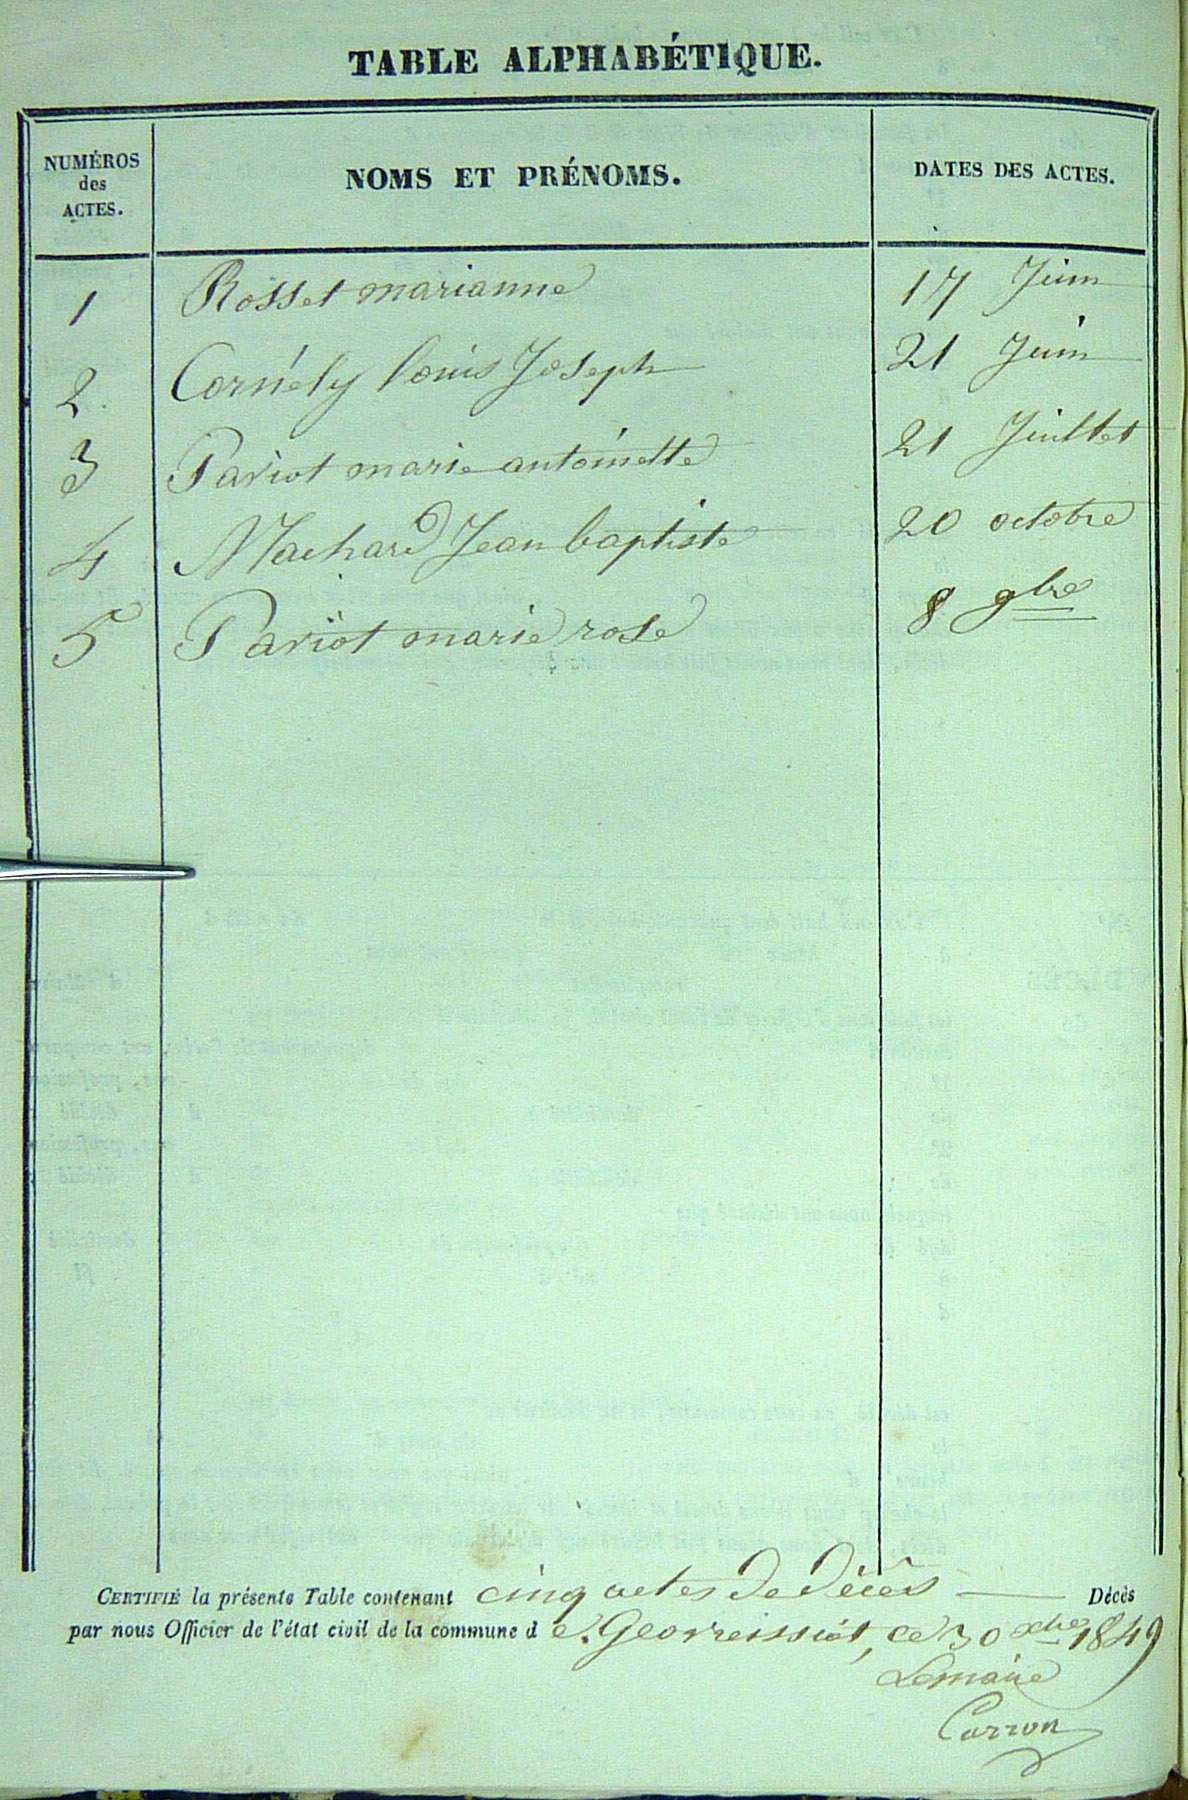 TABLE ALPHABÉTIQUE.
NUMÉROS des ACTES. NOMS ET PRÉNOMS. DATES DES ACTES.
1 Rosset marianne 17 Juin
2 Cornély louis Joseph 21 Juin
3 Pariot marie antoinette 21 Juillet
4 Machard Jean baptiste 20 octobre
5 Pariot marie rose 8 9bre
CERTIFIÉ la présente Table contenant cinq actes de décès Décès
par nous Officier de l'état civil de la commune d e. Georreissiat, ce 30 xbre 1849
Lemaire
Carron